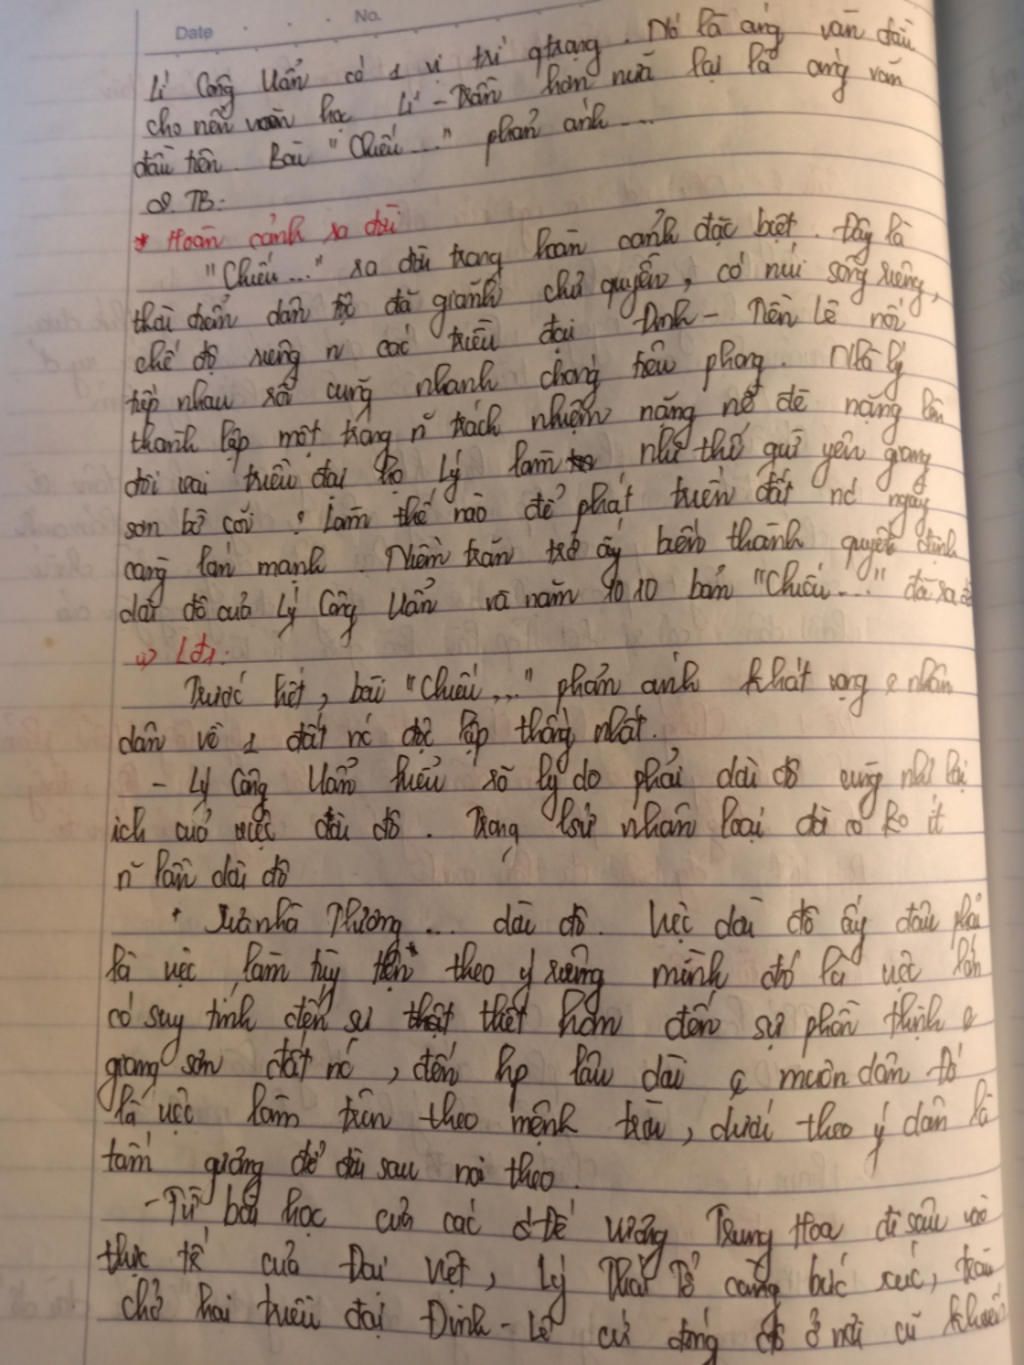 Date No.
Lí Công Uẩn có 1 vị trí qtrọng. Nó là áng văn đầu
cho nền văn học Lí - Trần hơn nữa lại là áng văn
đầu tiên. Bài "Chiếu..." phản ánh ...
TB:
* Hoàn cảnh ra đời
"Chiếu..." ra đời trong hoàn cảnh đặc biệt. Đây là
thời điểm dân tộc đã giành chủ quyền, có núi sông riêng,
chế độ riêng n các triều đại Đinh - Tiền Lê nối
tiếp nhau rồi cũng nhanh chóng tiêu phong. Nhà Lý
thành lập một trong n~ trách nhiệm nặng nề đè nặng lên
đôi vai triều đại họ Lý làm như thế giữ yên giang
sơn bờ cõi ? Làm thế nào để phát triển đất nc ngày
càng lớn mạnh. Niềm trăn trở ấy biến thành quyết định
dời đô của Lý Công Uẩn và năm 1010 bản "Chiếu..." đã ra đời
=> Lđ1:
Trước hết, bài "Chiếu..." phản ánh khát vọng c nhân
dân về 1 đất nc độc lập thống nhất.
- Lý Công Uẩn hiểu rõ lý do phải dời đô cũng như lợi
ích của việc dời đô. Trong lsử nhân loại đã có ko ít
n~ lần dời đô
+ Xưa nhà Thương ... dời đô. Việc dời đô ấy đâu phải
là việc làm tùy tiện theo ý riêng mình đó là việc lớn
có suy tính đến sự thiệt hơn đến sự phồn thịnh c
giang sơn đất nc, đến hp lâu dài c muôn dân đó
là việc làm trên theo mệnh trời, dưới theo ý dân là
tấm gương để đời sau noi theo.
- Từ bài học của các đế vương Trung Hoa đi sâu vào
thực tế của Đại Việt, Lý Thái Tổ càng bức xúc, trăn
chở hai triều đại Đinh - Lê cứ đóng đô ở nơi cũ khiến